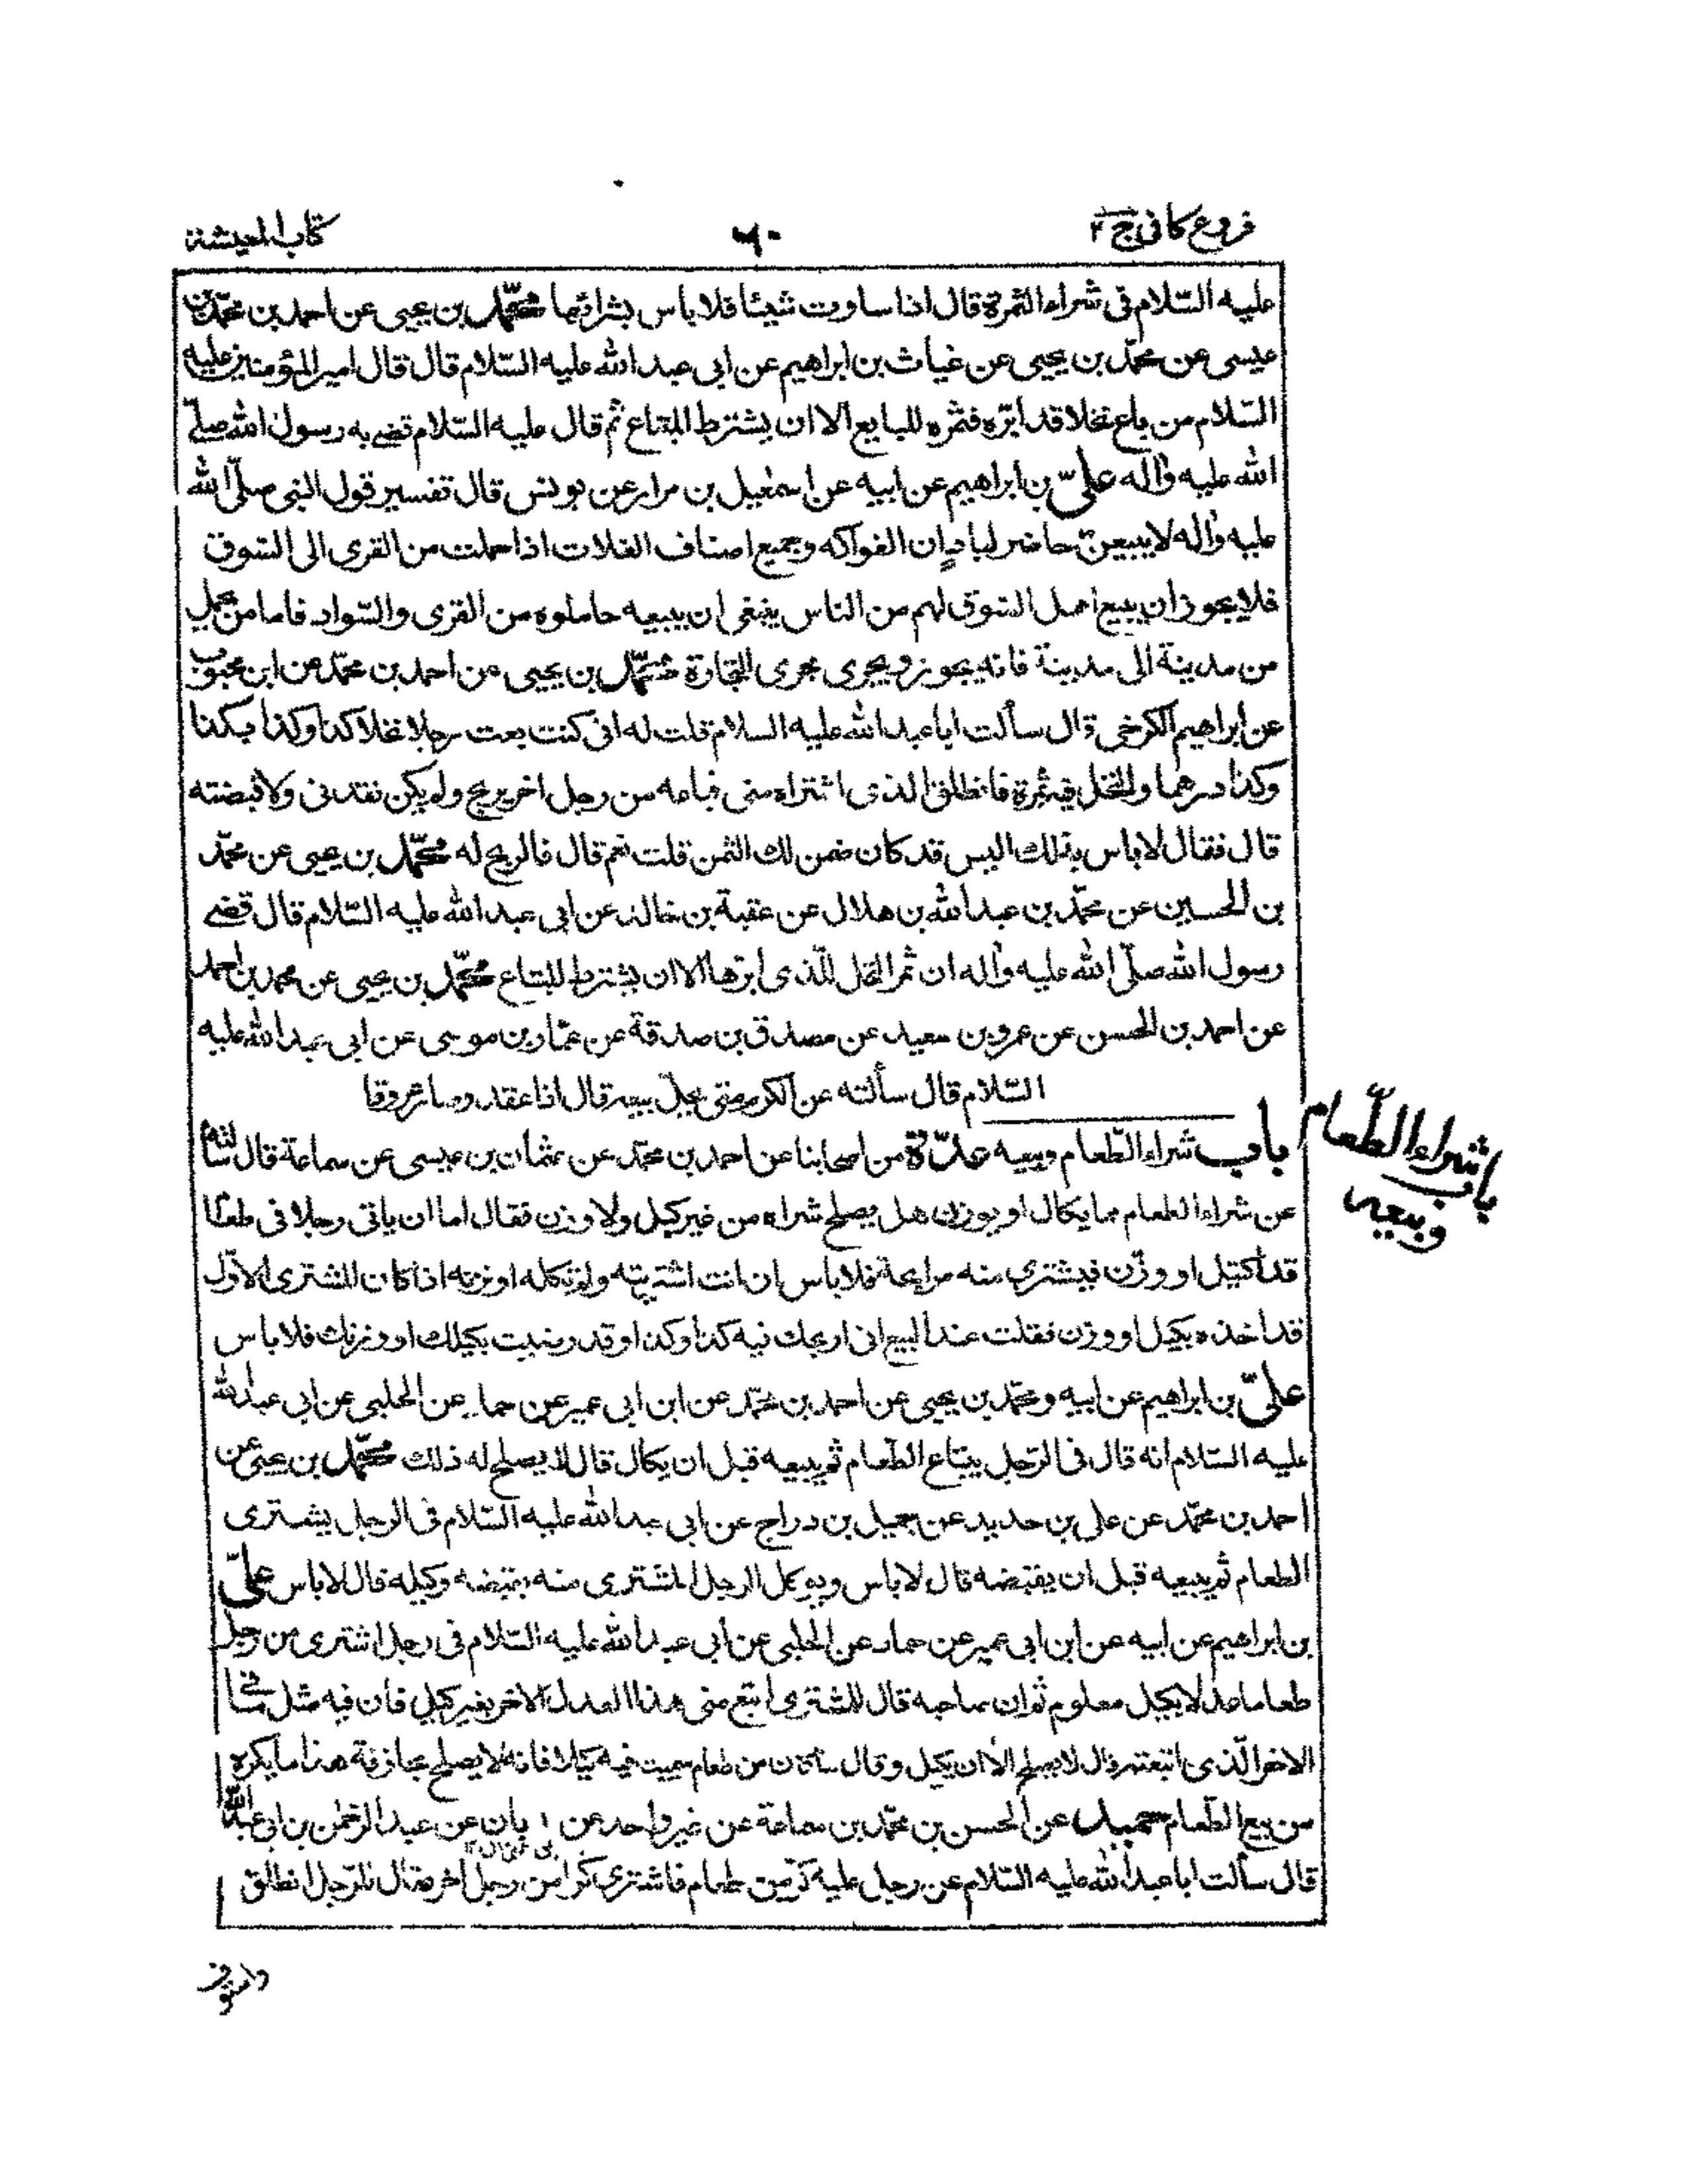 فروع كافى ج ٢
٦٠
كتاب المعيشة
عليه السّلام فى شراء الثمرة قال اذا ساوت شيئا فلا باس بشرائها محمّد بن يحيى عن احمد بن محمّد بن
عيسى عن محمّد بن يحيى عن غياث بن ابراهيم عن ابى عبد الله عليه السّلام قال قال امير المؤمنين عليه
السّلام من باع نخلا قد ابّره فثمره للبايع الا ان يشترط المبتاع ثم قال عليه السّلام قضى به رسول الله صلّى
الله عليه وآله علىّ بن ابراهيم عن ابيه عن اسمعيل بن مرار عن يونس قال تفسير قول النبى صلّى الله
عليه وآله لا يبيعنّ حاضر لبادٍ ان الفواكه وجميع اصناف الغلات اذا حملت من القرى الى السّوق
فلا يجوز ان يبيع اهل السّوق لهم من الناس ينبغى ان يبيعه حاملوه من القرى والسّواد فاما من يحمل
من مدينة الى مدينة فانه يجوز ويجرى مجرى التجارة محمّد بن يحيى عن احمد بن محمّد عن ابن محبوب
عن ابراهيم الكرخى قال سألت ابا عبد الله عليه السلام قلت له انى كنت بعت رجلا نخلا كذا وكذا بكذا
وكذا درهما والنخل فيه ثمرة فانطلق الذى اشتراه منى فباعه من رجل اخر بربح ولم يكن نقدنى ولا قبضته
قال فقال لا باس بذلك اليس قد كان ضمن لك الثمن قلت نعم قال فالربح له محمّد بن يحيى عن محمّد
بن الحسين عن محمّد بن عبد الله بن هلال عن عقبة بن خالد عن ابى عبد الله عليه السّلام قال قضى
رسول الله صلّى الله عليه وآله ان ثمر النخل للّذى ابّرها الا ان يشترط المبتاع محمّد بن يحيى عن محمد بن احمد
عن احمد بن الحسن عن عمرو بن سعيد عن مصدق بن صدقة عن عمّار بن موسى عن ابى عبد الله عليه
السّلام قال سألته عن الكرم متى يحلّ بيعه قال اذا عقد وصار عروقا
باب شراء الطّعام وبيعه عدّة من اصحابنا عن احمد بن محمّد عن عثمان بن عيسى عن سماعة قال سألته
باب شراء الطّعام
وبيعه
عن شراء الطعام مما يكال او يوزن هل يصلح شراه من غير كيل ولا وزن فقال اما ان ياتى رجلا فى طعام
قد اكتيل او وزن فيشترى منه مرابحة فلا باس ان انت اشتريته ولم تكله او تزنه اذا كان المشترى الاوّل
قد اخذه بكيل او وزن فقلت عند البيع انى اربحك فيه كذا وكذا وقد رضيت بكيلك او وزنك فلا باس
علىّ بن ابراهيم عن ابيه ومحمّد بن يحيى عن احمد بن محمّد عن ابن ابى عمير عن حماد عن الحلبى عن ابى عبد الله
عليه السّلام انه قال فى الرّجل يبتاع الطّعام ثم يبيعه قبل ان يكال قال لا يصلح له ذلك محمّد بن يحيى عن
احمد بن محمّد عن على بن حديد عن جميل بن دراج عن ابى عبد الله عليه السّلام فى الرجل يشترى
الطعام ثم يبيعه قبل ان يقبضه قال لا باس ويوكل الرجل المشترى منه بقبضه وكيله قال لا باس علىّ
بن ابراهيم عن ابيه عن ابن ابى عمير عن حماد عن الحلبى عن ابى عبد الله عليه السّلام فى رجل اشترى من رجل
طعاما عدلا بكيل معلوم ثم ان صاحبه قال للمشترى ابتع منى هذا العدل الاخر بغير كيل فان فيه مثل ما فى
الاخر الّذى ابتعته قال لا يصلح الا ان يكيل وقال ما كان من طعام سميت فيه كيلا فانه لا يصلح مجازفة هذا ما يكره
من بيع الطّعام حميد عن الحسن بن محمّد بن سماعة عن غير واحد عن ابان عن عبد الرحمن بن ابى عبد الله
قال سألت ابا عبد الله عليه السّلام عن رجل عليه كرّ من طعام فاشترى كرا من رجل اخر فقال للرّجل انطلق